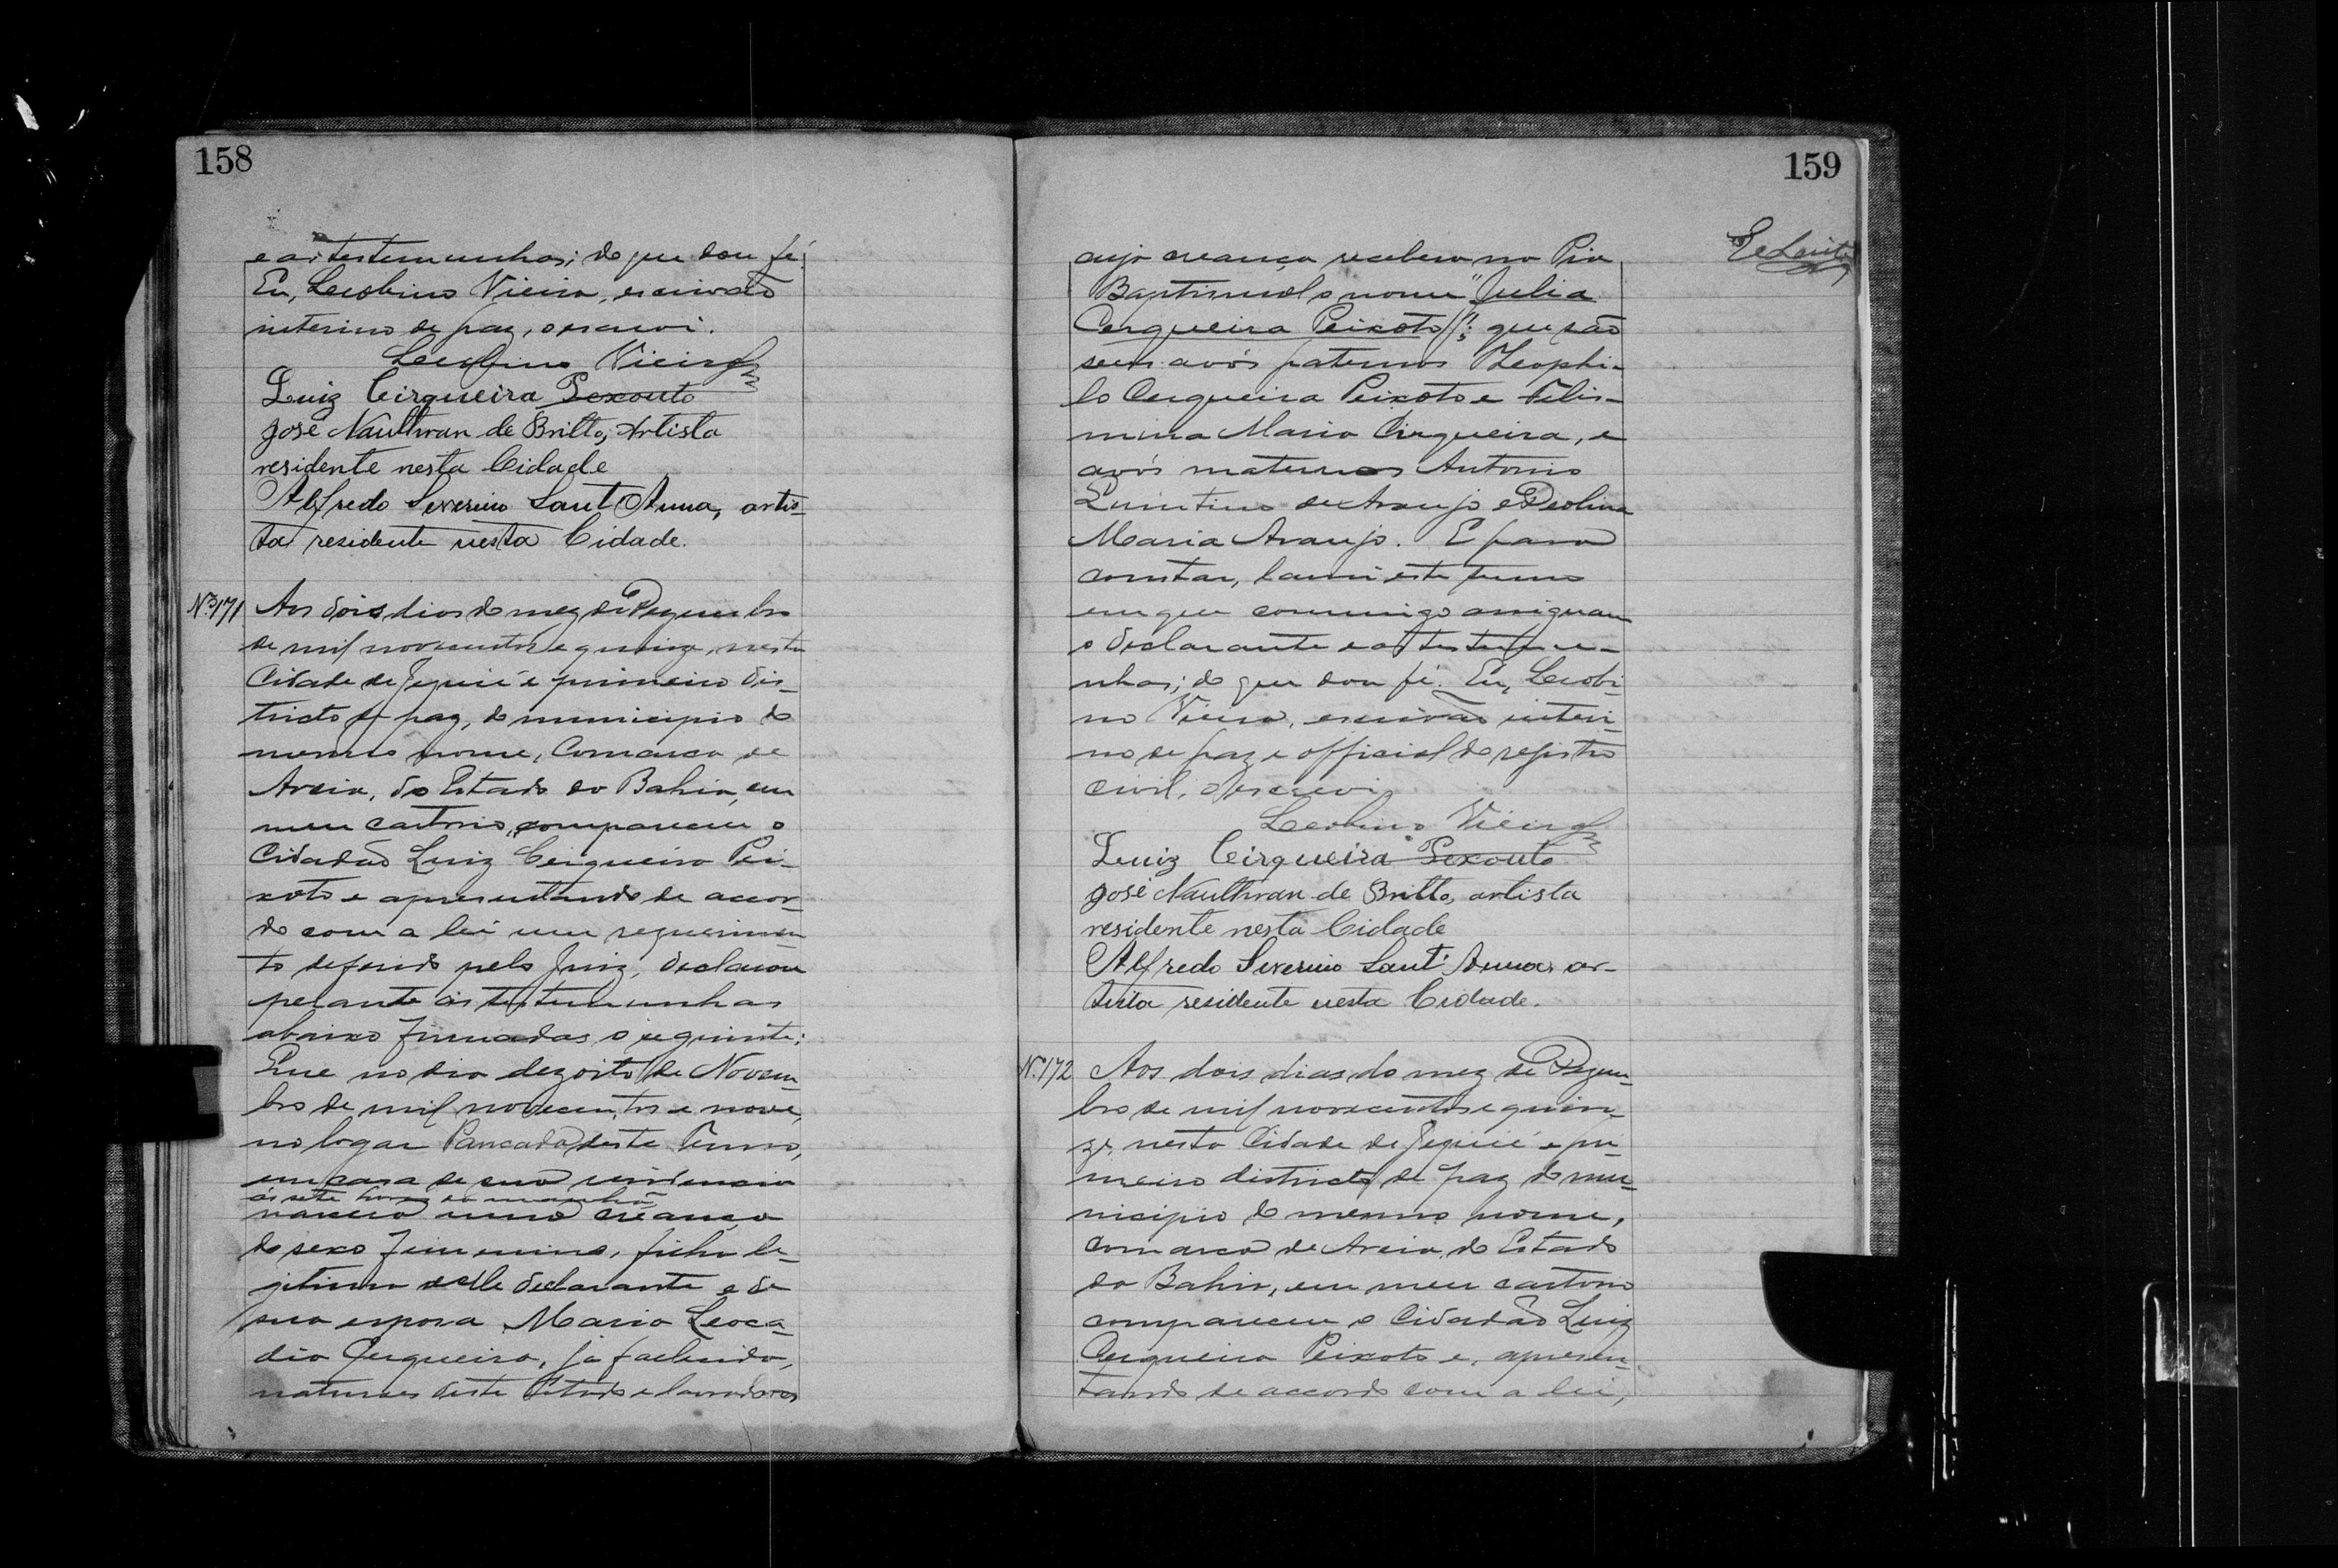 158
e as testemunhas; do que dou fé.
Eu, Leolino Vieira, escrivão
interino de paz, o escrevi.
Leolino Vieira
Luiz Cirqueira Pexouto
José Nauthran de Britto, Artista
residente nesta Cidade
Alfredo Severino Sant'Anna, artis-
ta residente nesta Cidade.
Nº 171 Aos dois dias do mez de Dezembro
de mil novecentos e quinze, nesta
Cidade de Jequié e primeiro dis-
tricto de paz, do municipio do
mesmo nome, Comarca de
Areia, do Estado da Bahia, em
meu cartorio, compareceu o
Cidadão Luiz Cerqueira Pei-
xoto e apresentando de accor-
do com a lei um requerimen-
to deferido pelo Juiz, declarou
perante as testemunhas
abaixo firmadas o seguinte:
Que no dia dezoito de Novem-
bro de mil novecentos e nove,
no logar Pancada deste Termo,
em casa de sua residencia
ás sete horas da manhã
nasceu uma creança
do sexo feminino, filha le-
gitima delle declarante e de
sua esposa Maria Leoca-
dia Cerqueira, já fallecida,
naturaes deste Estado e lavradores
159
cuja creança recebera na Pia
Baptismal o nome "Julia
Cerqueira Peixoto"; que são
seus avós paternos Theophi-
lo Cerqueira Peixoto e Felis-
mina Maria Cirqueira, e
avós maternos Antonio
Quintino de Araujo e Deolina
Maria Araujo. E para
constar, lavrei este termo
em que commigo assignam
o declarante e as testemu-
nhas; do que dou fé. Eu, Leoli-
no Vieira, escrivão interi-
no de paz e official do registro
civil, o escrevi
Leolino Vieira
Luiz Cirqueira Pexouto
José Nauthran de Britto, artista
residente nesta Cidade
Alfredo Severino Sant'Anna, ar-
tista residente nesta Cidade.
Nº 172 Aos dois dias do mez de Dezem-
bro de mil novecentos e quin-
ze, nesta Cidade de Jequié e pri-
meiro districto de paz do mu-
nicipio do mesmo nome,
Comarca de Areia, do Estado
da Bahia, em meu cartorio
compareceu o Cidadão Luiz
Cerqueira Peixoto e, apresen-
tando de accordo com a lei,